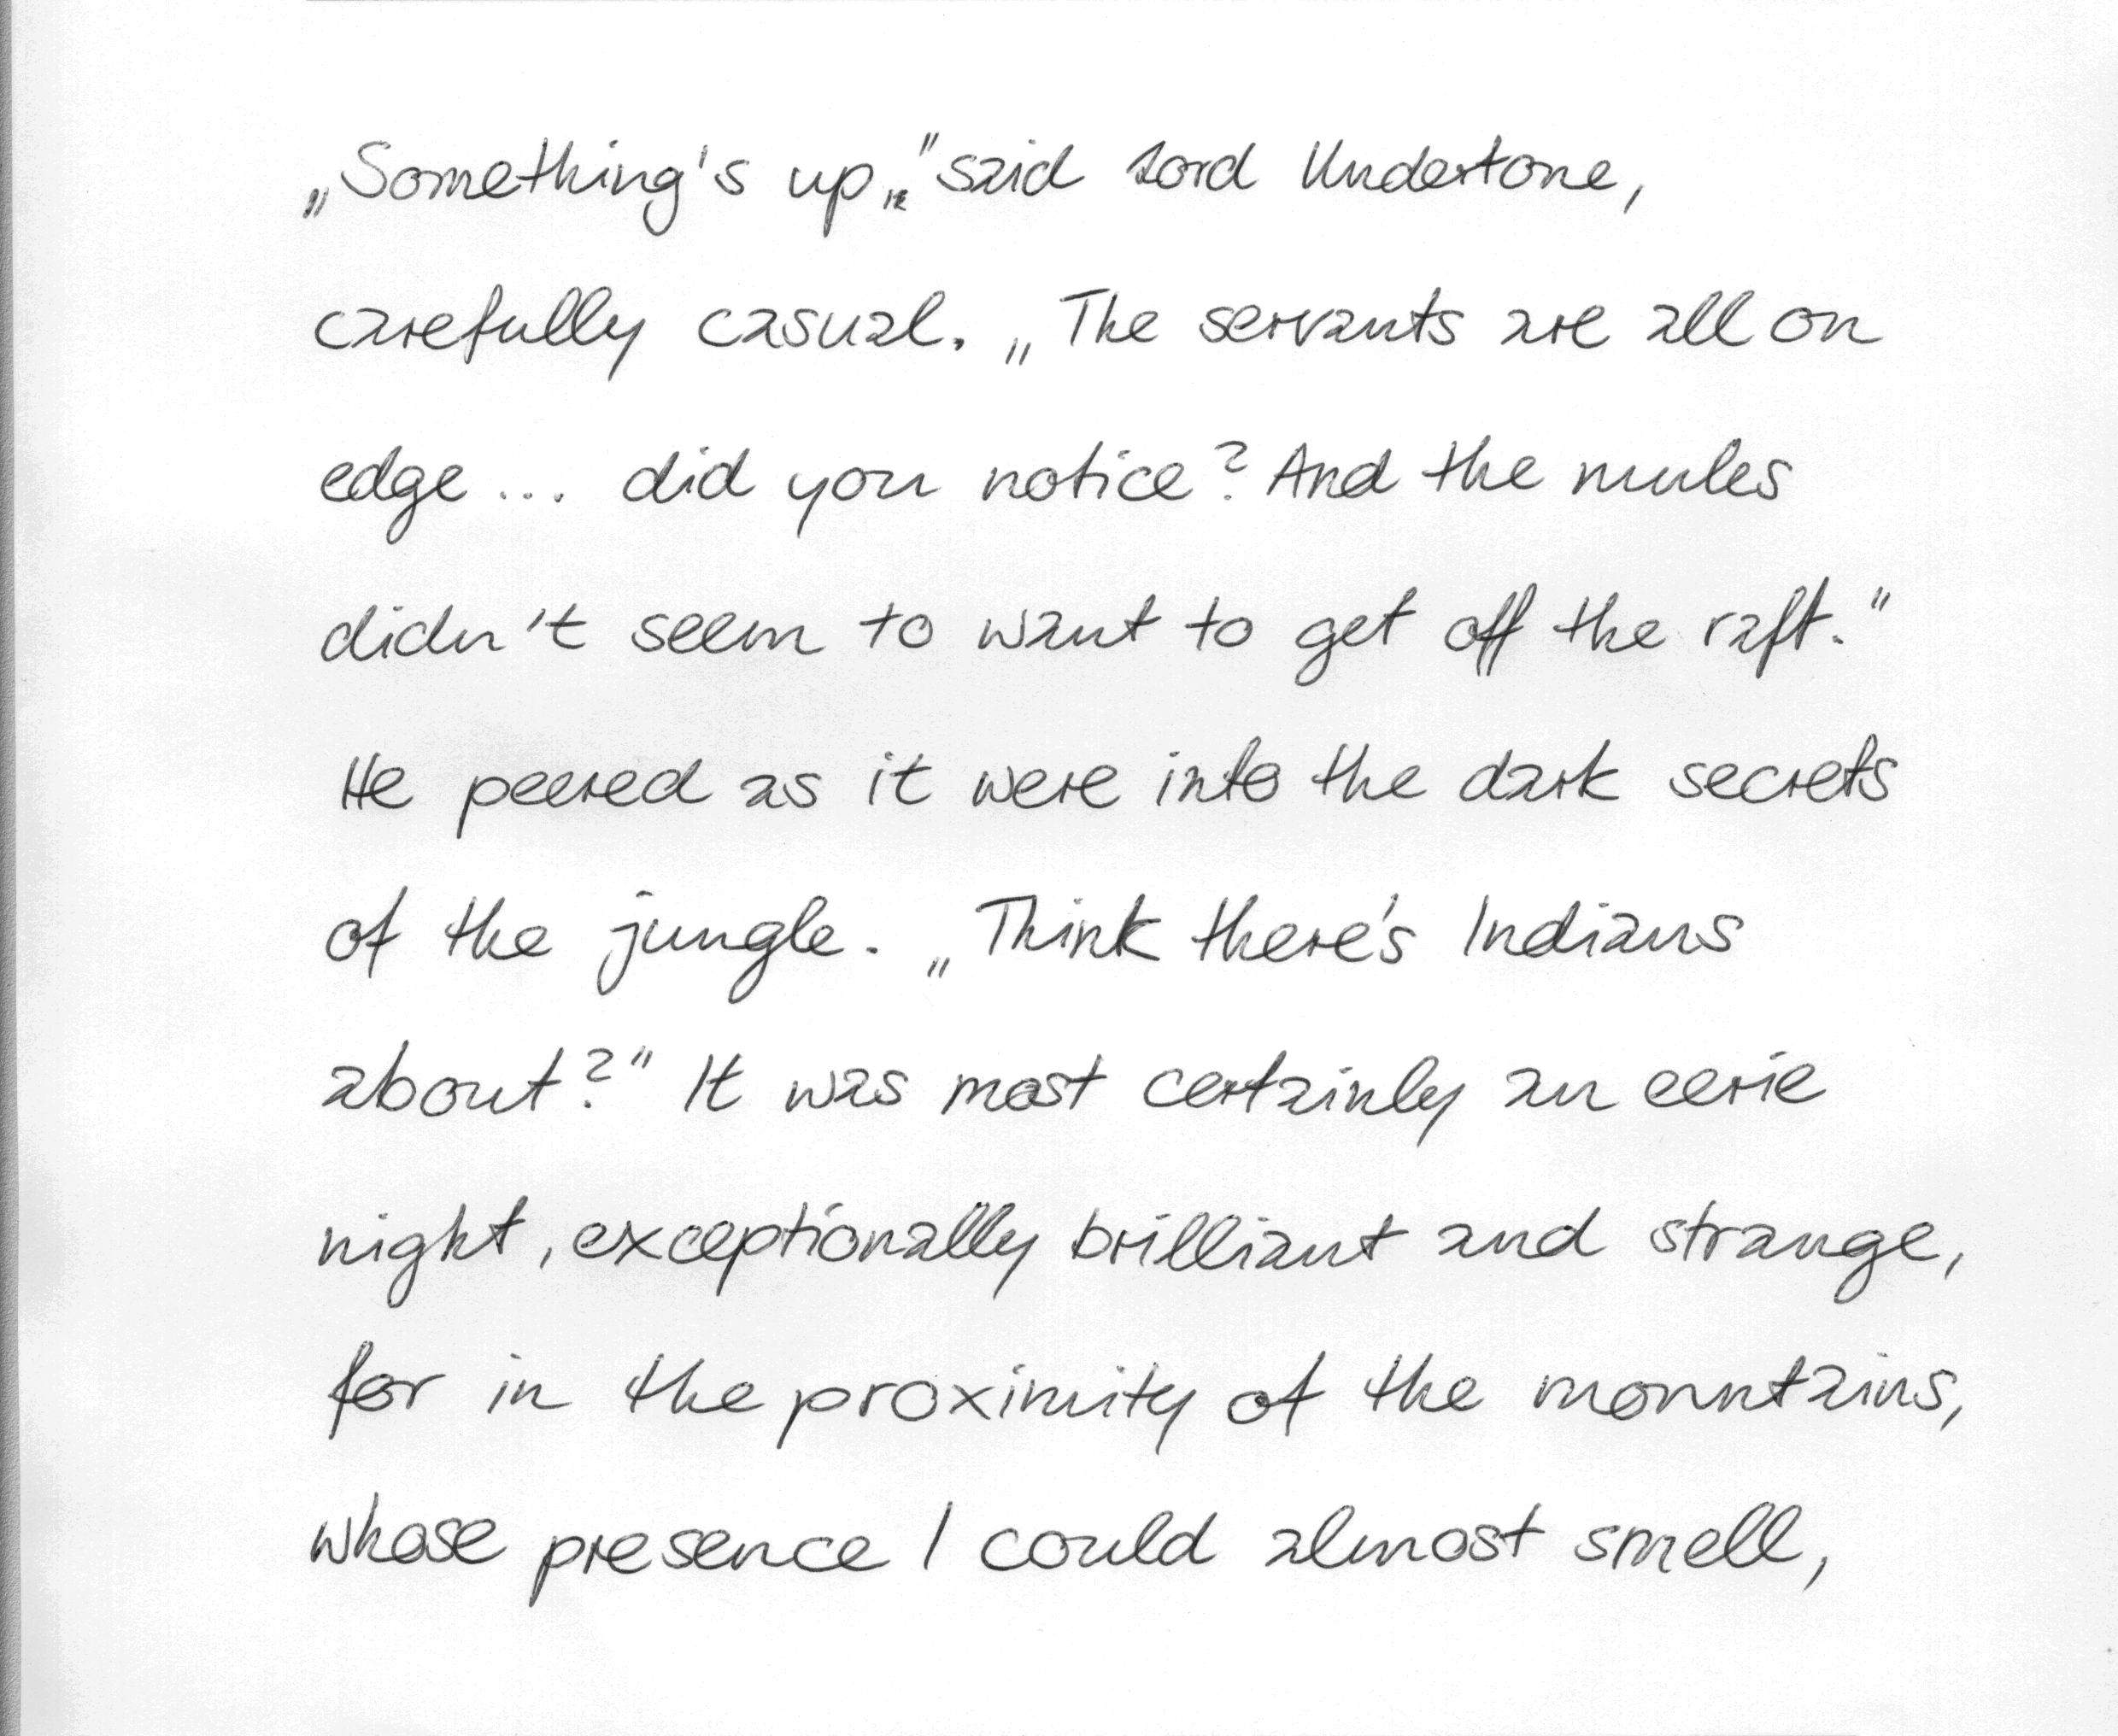 „Something's up,“ said Lord Undertone,
carefully casual. „The servants are all on
edge... did you notice? And the mules
didn't seem to want to get off the raft.“
He peered as it were into the dark secrets
of the jungle. „Think there's Indians
about?“ It was most certainly an eerie
night, exceptionally brilliant and strange,
for in the proximity of the mountains,
whose presence I could almost smell,